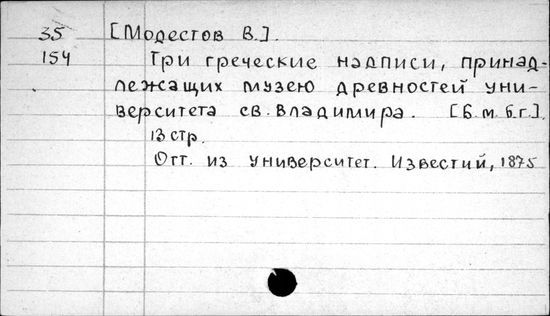 35 [Модестов В.].
154 Три греческие надписи, принад-
лежащих музею древностей уни-
верситета св. Владимира. [Б.м. б.г.].
13 стр.
Отт. из Университет. Известий, 1875